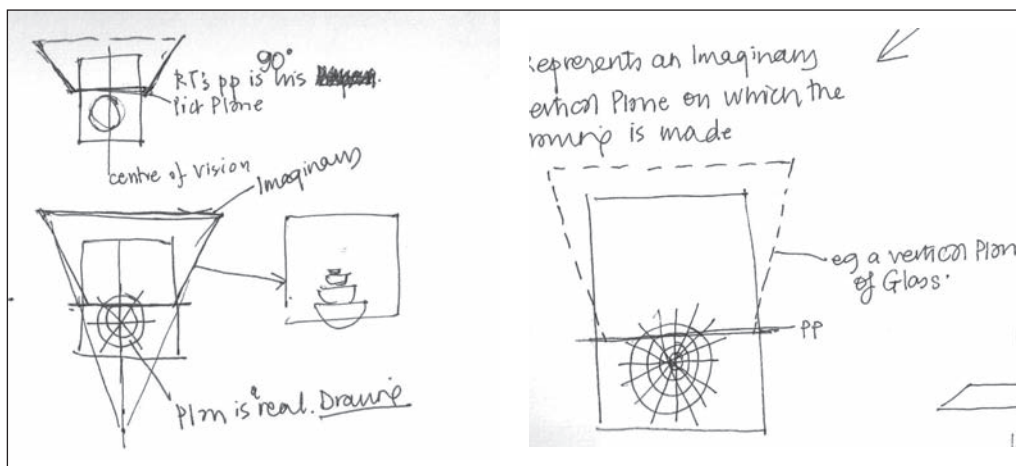 RT's pp is 90° his
Pict Plane
centre of vision
Imaginary
Plan is "real. Drawing
epresents an Imaginary
ertical Plane on which the
rawing is made
eg a vertical Plan
of Glass.
PP